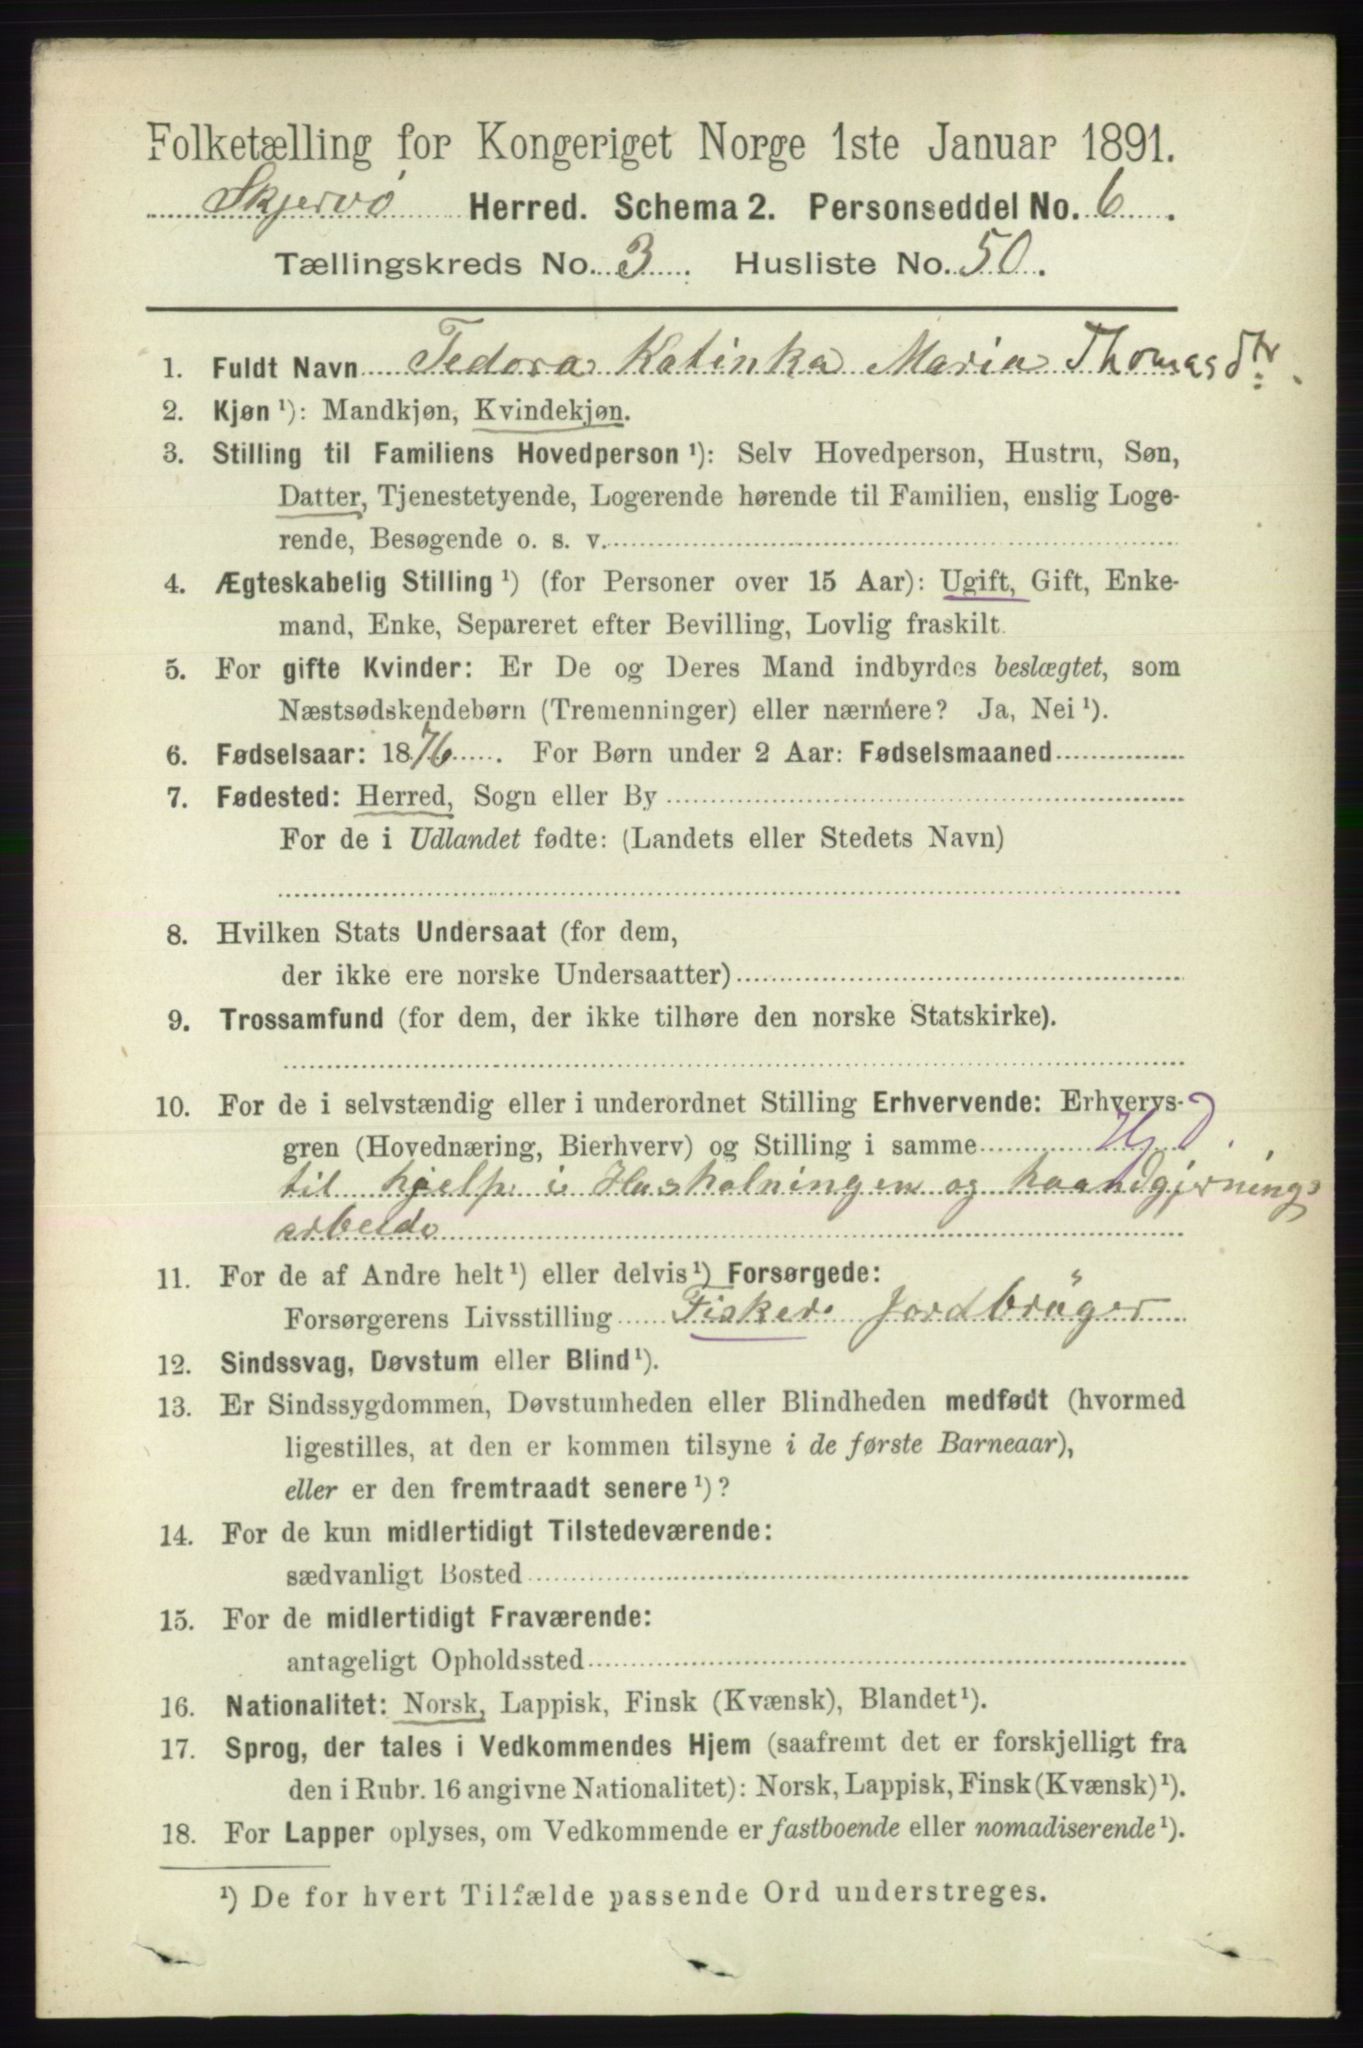 Folketælling for Kongeriget Norge 1ste Januar 1891.
Skjervö Herred. Schema 2. Personseddel No. 6.
Tællingskreds No. 3. Husliste No. 50.
1. Fuldt Navn Fedora Katinka Maria Thomasdtr.
2. Kjøn ¹): Mandkjøn, Kvindekjøn.
3. Stilling til Familiens Hovedperson ¹): Selv Hovedperson, Hustru, Søn,
Datter, Tjenestetyende, Logerende hørende til Familien, enslig Loge-
rende, Besøgende o. s. v.
4. Ægteskabelig Stilling ¹) (for Personer over 15 Aar): Ugift, Gift, Enke-
mand, Enke, Separeret efter Bevilling, Lovlig fraskilt.
5. For gifte Kvinder: Er De og Deres Mand indbyrdes beslægtet, som
Næstsødskendebørn (Tremenninger) eller nærmere? Ja, Nei ¹).
6. Fødselsaar: 1876. For Børn under 2 Aar: Fødselsmaaned
7. Fødested: Herred, Sogn eller By
For de i Udlandet fødte: (Landets eller Stedets Navn)
8. Hvilken Stats Undersaat (for dem,
der ikke ere norske Undersaatter)
9. Trossamfund (for dem, der ikke tilhøre den norske Statskirke).
10. For de i selvstændig eller i underordnet Stilling Erhvervende: Erhvervs-
gren (Hovednæring, Bierhverv) og Stilling i samme
til hjelp i Husholningen og haandgjernings
arbeide
11. For de af Andre helt ¹) eller delvis ¹) Forsørgede:
Forsørgerens Livsstilling Fisker Jordbrüger
12. Sindssvag, Døvstum eller Blind ¹).
13. Er Sindssygdommen, Døvstumheden eller Blindheden medfødt (hvormed
ligestilles, at den er kommen tilsyne i de første Barneaar),
eller er den fremtraadt senere ¹)?
14. For de kun midlertidigt Tilstedeværende:
sædvanligt Bosted
15. For de midlertidigt Fraværende:
antageligt Opholdssted
16. Nationalitet: Norsk, Lappisk, Finsk (Kvænsk), Blandet ¹).
17. Sprog, der tales i Vedkommendes Hjem (saafremt det er forskjelligt fra
den i Rubr. 16 angivne Nationalitet): Norsk, Lappisk, Finsk (Kvænsk) ¹).
18. For Lapper oplyses, om Vedkommende er fastboende eller nomadiserende ¹).
¹) De for hvert Tilfælde passende Ord understreges.